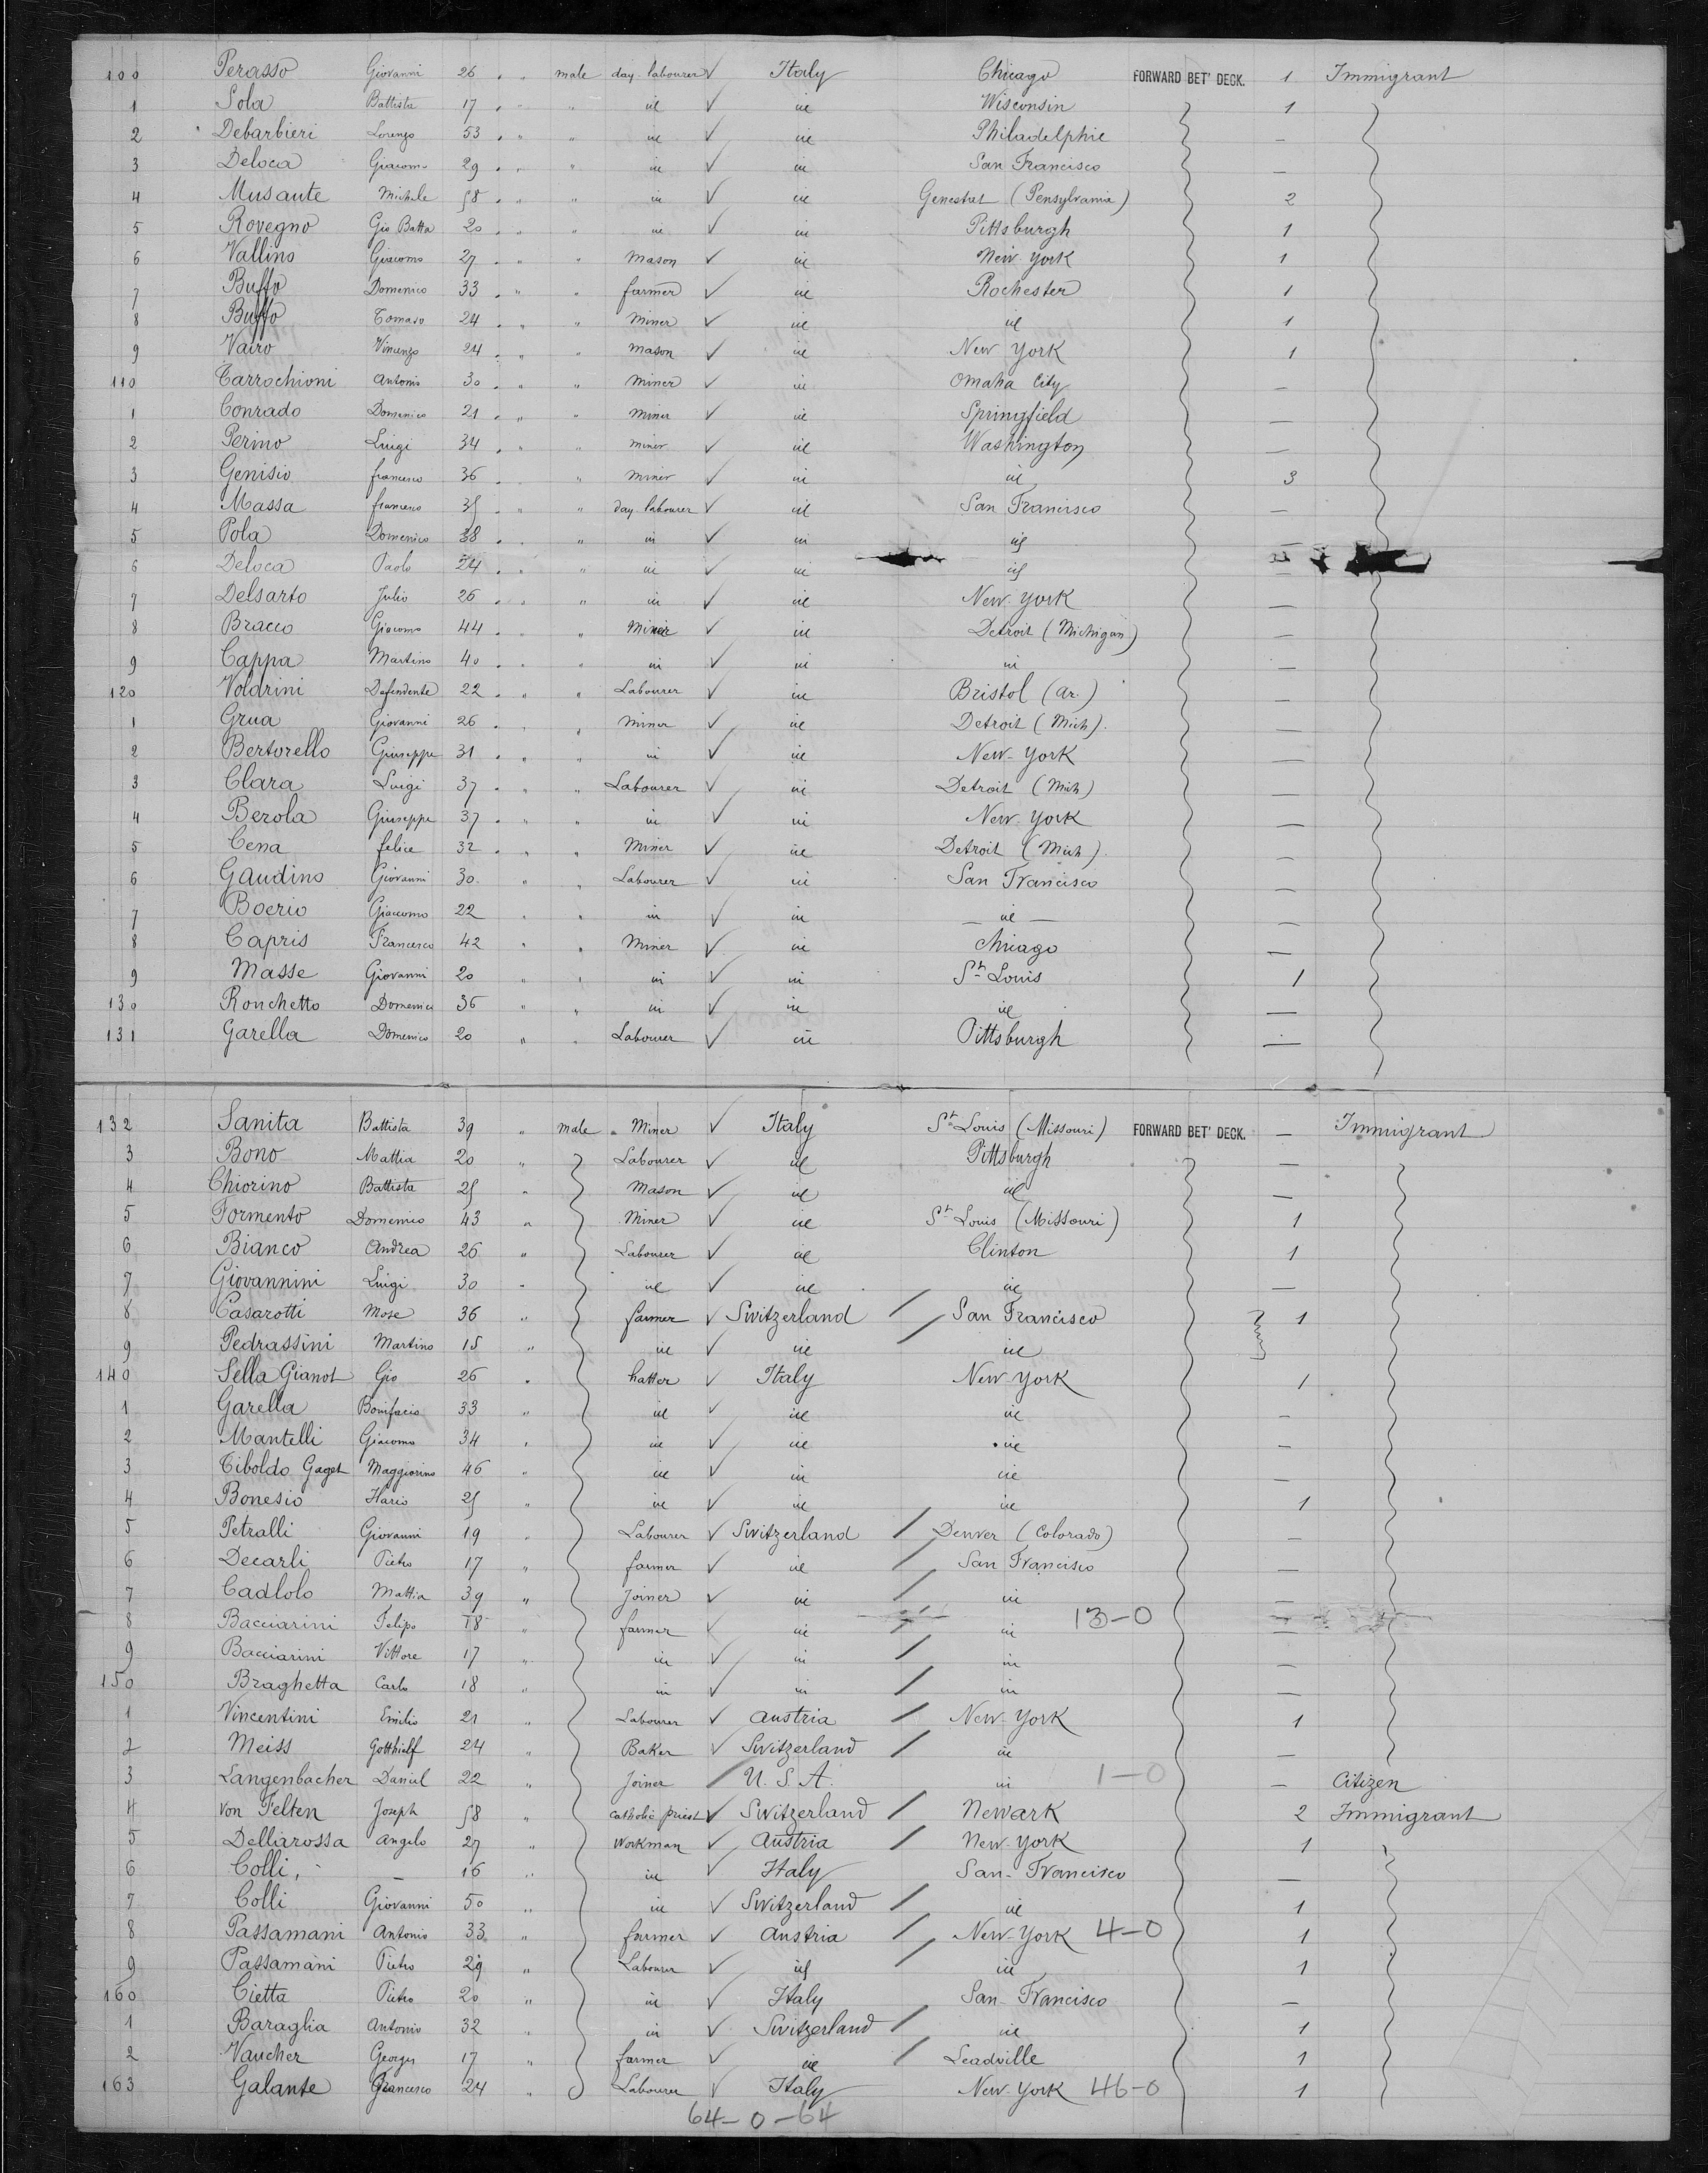 100 Perasso Giovanni 26 " male day labourer Italy Chicago FORWARD BET' DECK. 1 Immigrant
1 Sola Battista 17 " " id id Wisconsin 1
2 Debarbieri Lorenzo 53 " " id id Philadelphie —
3 Deloca Giacomo 29 " " id id San Francisco —
4 Musante Michele 58 " " id id (Pensylvania) 2
5 Rovegno Gio Batta 20 " " id id Pittsburgh 1
6 Vallino Giacomo 27 " " Mason id New York 1
7 Buffo Domenico 33 " " farmer id Rochester 1
8 Buffo Tomaso 24 " " Miner id id 1
9 Vairo Vincenzo 24 " " Mason id New York 1
110 Tarrochioni Antonio 30 " " Miner id Omaha City —
1 Conrado Domenico 21 " " Miner id Springfield —
2 Perino Luigi 34 " " Miner id Washington —
3 Genisio francesco 36 " Miner id id 3
4 Massa francesco 35 " " day labourer id San Francisco —
5 Pola Domenico 38 " " id id id —
6 Deloca Paolo 24 " " id id id —
7 Delsarto Julio 26 " " id id New York —
8 Bracco Giacomo 44 " " Miner id Detroit (Michigan) —
9 Cappa Martino 40 " " id id id —
120 Voldrini Defendente 22 " " Labourer id Bristol (Ar.) —
1 Grua Giovanni 26 " " Miner id Detroit (Mich). —
2 Bertorello Giuseppe 31 " " id id New-York —
3 Clara Luigi 37 " " Labourer id Detroit (Mich) —
4 Berola Giuseppe 37 " " id id New-York —
5 Cena felice 32 " " Miner id Detroit (Mich). —
6 Gaudino Giovanni 30 " " Labourer id San Francisco —
7 Boerio Giacomo 22 " " id id — id — —
8 Capris Francesco 42 " " Miner id Chicago —
9 Masse Giovanni 20 " " id id St Louis 1
130 Ronchetto Domenico 36 " " id id id —
131 Garella Domenico 20 " " Labourer id Pittsburgh —
132 Sanita Battista 39 " male Miner Italy St Louis (Missouri) FORWARD BET' DECK. — Immigrant
3 Bono Mattia 20 " Labourer id Pittsburgh —
4 Chiorino Battista 25 " Mason id id —
5 Formento Domenico 43 " Miner id St Louis (Missouri) 1
6 Bianco Andrea 26 " Labourer id Clinton 1
7 Giovannini Luigi 30 " id id id —
8 Casarotti Mose 36 " farmer Switzerland San Francisco 1
9 Pedrassini Martino 15 " id id id
140 Sella Gianot Gio 26 " hatter Italy New York 1
1 Garella Bonifacio 33 " id id id —
2 Mantelli Giacomo 34 " id id id —
3 Tiboldo Gaget Maggiorino 46 " id id id —
4 Bonesio Ilario 25 " id id id 1
5 Petralli Giovanni 19 " Labourer Switzerland Denver (Colorado) —
6 Decarli Pietro 17 " farmer id San Francisco —
7 Cadlolo Mattia 39 " Joiner id id —
8 Bacciarini Felipo 18 " farmer id id 13-0 —
9 Bacciarini Vittore 17 " id id id —
150 Braghetta Carlo 18 " id id id —
1 Vincentini Emilio 21 " Labourer Austria New York 1
2 Meiss Gotthielf 24 " Baker Switzerland id —
3 Langenbacher Daniel 22 " Joiner U. S. A. id 1-0 — Citizen
4 von Felten Joseph 58 " catholic priest Switzerland Newark 2 Immigrant
5 Dellarossa Angelo 27 " Workman Austria New-York 1
6 Colli — 16 " id Italy San-Francisco —
7 Colli Giovanni 50 " id Switzerland id 1
8 Passamani Antonio 33 " farmer Austria New-York 4-0 1
9 Passamani Pietro 29 " Labourer id id 1
160 Cietta Pietro 20 " id Italy San-Francisco —
1 Baraglia Antonio 32 " id Switzerland id 1
2 Vaucher Georges 17 " farmer id Leadville 1
163 Galante Francesco 24 " Labourer Italy New-York 46-0 1
64-0-64